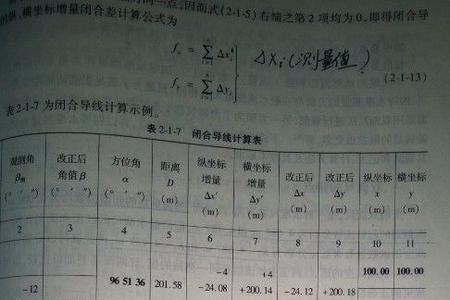 同一点,因而式(2-1-5)右端之第2项均为0,即得闭合导
的纵、横坐标增量闭合差计算公式为
fx = ∑Δx'i
Δxi(测量值)
fy = ∑Δyi
(2-1-13)
表2-1-7为闭合导线计算示例。
表2-1-7 闭合导线计算表
观测角 βm (° ′ ″) 改正后 角值β (° ′ ″) 方位角 α (° ′ ″) 距离 D (m) 纵坐标 增量 Δx′ (m) 横坐标 增量 Δy′ (m) 改正后 Δx (m) 改正后 Δy (m) 纵坐标 x (m) 横坐标 y (m)
2 3 4 5 6 7 8 9 10 11
100.00 100.00
-4 +4
-12 96 51 36 201.58 -24.08 +200.14 -24.12 +200.18